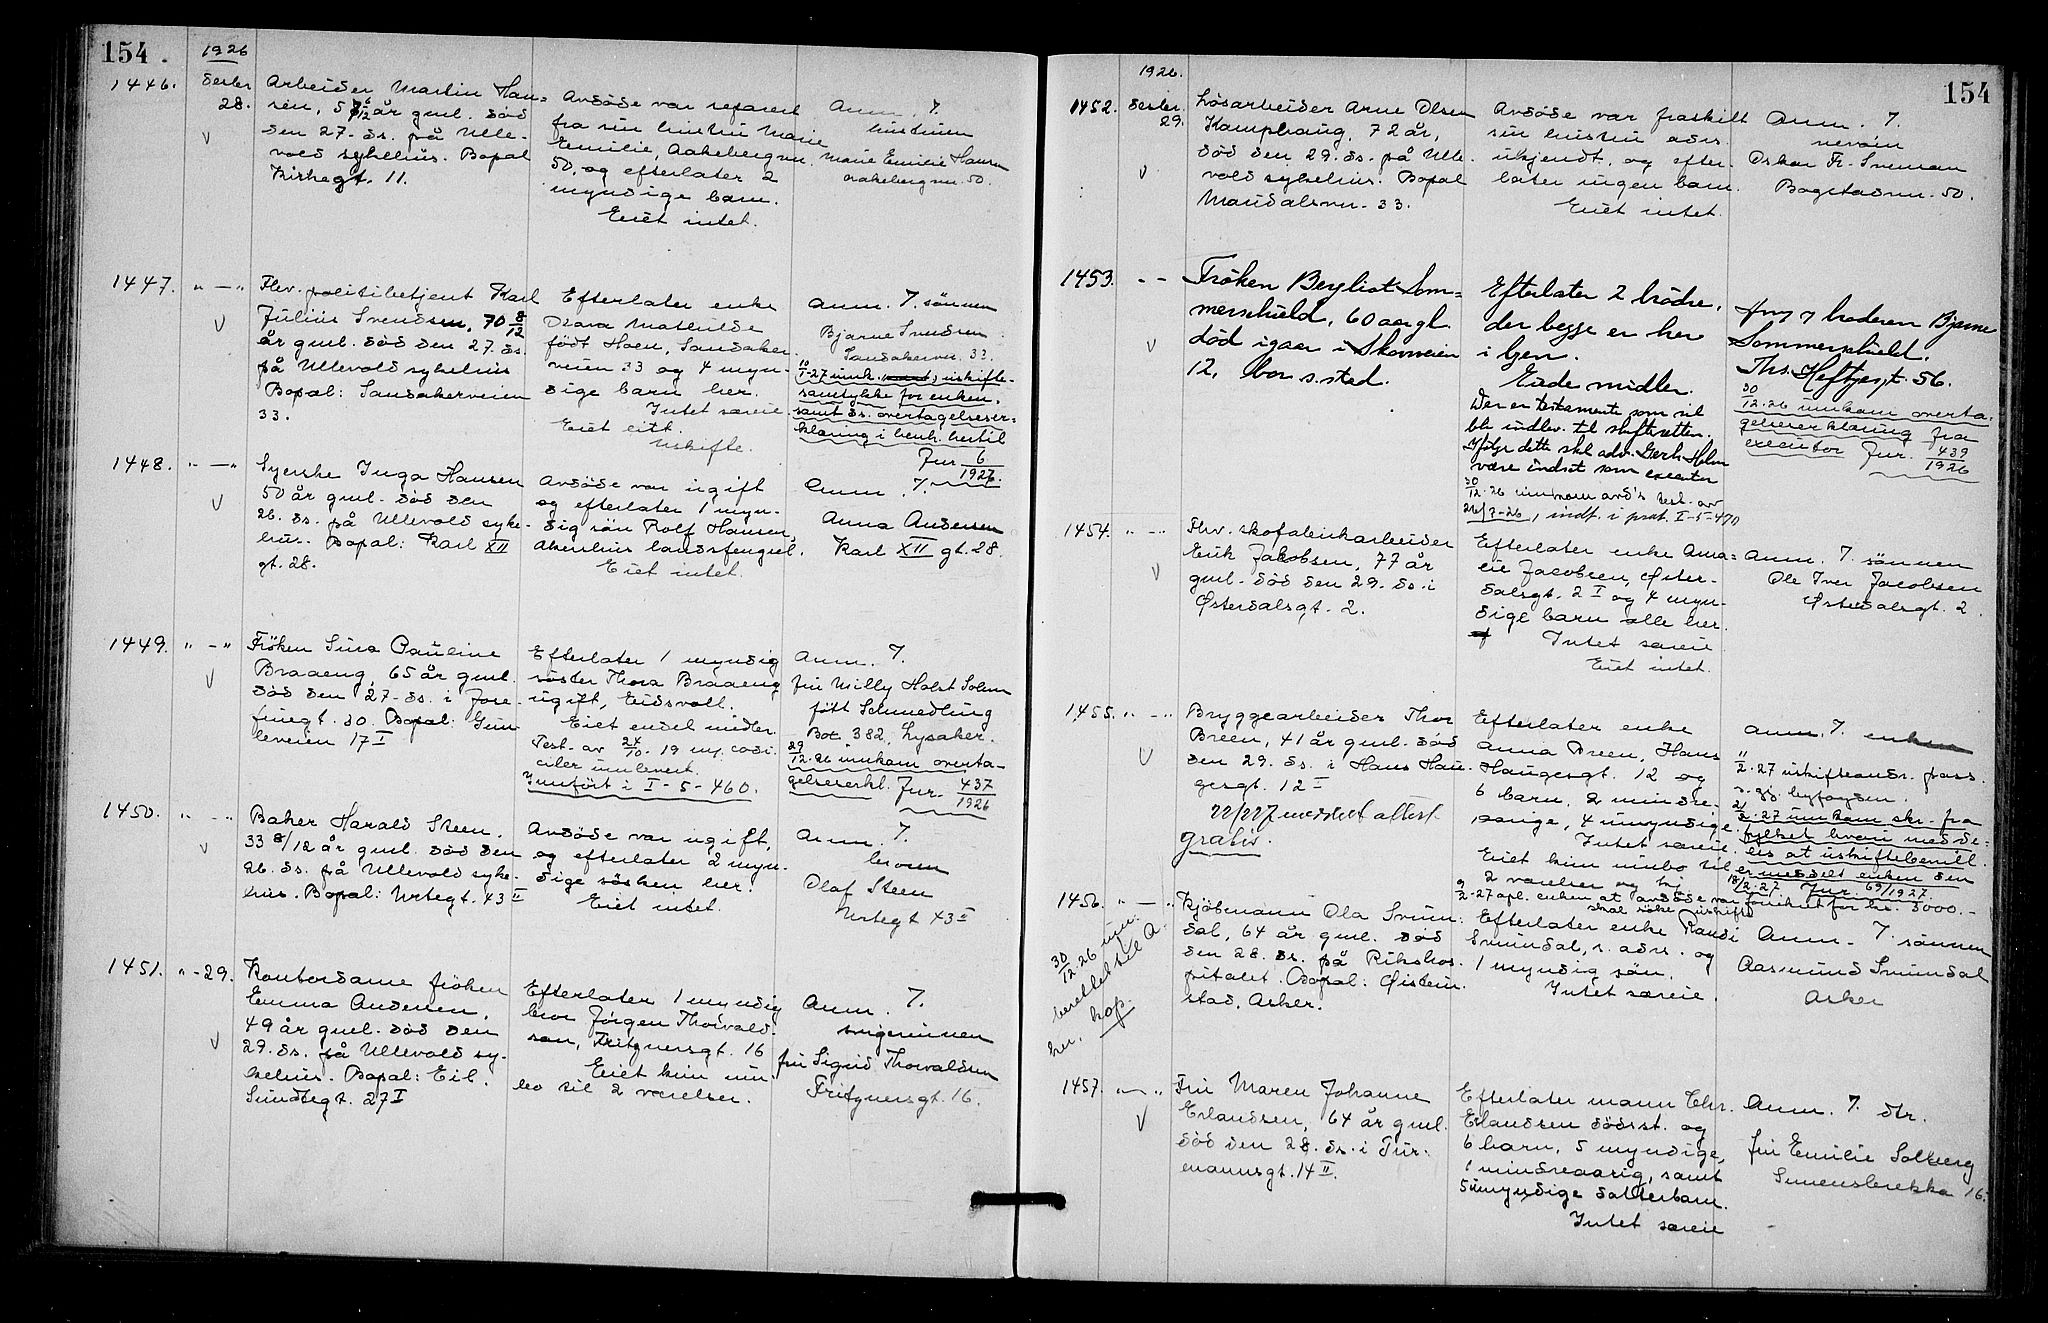 154.
1926
1446.
Desbr.
28.
Arbeider Martin Han=
sen, 57 år gml. död
den 27. ds. på Ulle-
vold sykehus. Bopal
Kirkegt. 11.
Avdöde var separert
fra sin hustru Marie
Emilie, Aakebergvn.
50, og efterlater 2
myndige barn.
Eiet intet.
Anm. 7.
hustruen
Marie Emilie Hansen
Aakebergvn. 50.
1447.
" — "
Fhv. politibetjent Karl
Julius Svendsen, 70 8/12
år gml. död den 27. ds.
på Ullevold sykehus
Bopal: Sandakerveien
33.
Efterlater enke
Olava Mathilde
födt Hoen, Sandaker-
veien 33 og 4 myn-
dige barn her.
Intet særeie
Eiet litt.
Uskifte.
Anm. 7. sönnen
Bjarne Svendsen
Sandakervn. 33.
10/1-27 innk. uskifte-
samtykke for enken,
samt ds. overtagelseser-
klæring i henh. hertil
Jnr. 6/1927.
1448.
" — "
Syerske Inga Hansen
50 år gml. död den
26. ds. på Ullevold syke-
hus. Bopal: Karl XII
gt. 28.
Avdöde var ugift
og efterlater 1 myn-
dig sön Rolf Hansen,
Akershus landsfengsel.
Eiet intet.
Anm. 7.
Anna Andersen
Karl XII gt. 28.
1449.
" — "
Fröken Sina Pauline
Braaeng, 65 år gml.
död den 27. ds. i Jose-
finegt. 30. Bopal: Gim-
leveien 17 I
Efterlater 1 myndig
söster Thora Braaeng
ugift, Eidsvoll.
Eiet endel midler
Test. av 24/10-19 m. codi-
ciler innlevert.
Innfört i I-5-460.
Anm. 7.
fru Milly Holst Solem
födt Schmedling
Box 382, Lysaker.
29/12-26 innkom overta-
gelseserkl. Jnr. 437/1926
1450.
" — "
Baker Harald Steen,
33 8/12 år gml. död den
26. ds. på Ullevold syke-
hus. Bopal: Urtegt. 43 II
Avdöde var ugift,
og efterlater 2 myn-
dige sösken her.
Eiet intet.
Anm. 7.
broren
Olaf Steen
Urtegt 43 II
1451.
" - 29.
Kontordame fröken
Emma Andersen,
49 år gml. död den
29. ds. på Ullevold sy-
kehus. Bopal: Eil.
Sundtsgt. 27 I
Efterlater 1 myndig
bror Jörgen Thorvald-
sen, Fritznersgt. 16
Eiet kun inn-
bo til 2 værelser.
Anm. 7.
svigerinnen
fru Sigrid Thorvaldsen
Fritznersgt. 16.
154
1926.
1452.
Desbr.
29.
Lösarbeider Arne Olsen
Kamphaug, 72 år,
död den 29. ds. på Ulle-
vold sykehus. Bopal
Maridalsvn. 33.
Avdöde var fraskilt
sin hustru adrs.
ukjendt, og efter-
later ingen barn.
Eiet intet.
Anm. 7.
nevöin
Oskar Fr. Svensen
Bogstadvn. 50.
1453.
" —
Fröken Bergliot Som=
merschield, 60 aar gl.
död igaar i Skovveien
12. bor s. sted.
Efterlater 2 brödre,
der begge er her
i byen.
Eiede midler.
Der er testamente som vil
bli indlev. til skifteretten.
Ifölge dette skal adv. Gerh. Holm
være indsat som executor
30/12-26 innkom avd's test. av
26/7-26, indt. i prot. I-5-470
Anm 7 broderen Bjarne
Sommerschield.
Ths. Heftyesgt. 56.
30/12-26 innkom overta-
gelseserklæring fra
executor Jnr. 439/1926
1454.
" — "
Fhv. skofabrikarbeider
Erik Jakobsen, 77 år
gml. död den 29. ds. i
Østerdalsgt. 2.
Efterlater enke Ama=
lie Jacobsen, Øster-
dalsgt. 2 I og 4 myn-
dige barn alle her.
Intet særeie
Eiet intet.
Anm. 7. sönnen
Ole Iver Jacobsen
Østerdalsgt. 2
1455.
" — "
Bryggearbeider Thor
Breen, 41 år gml. död
den 29. ds. i Hans Hau-
gesgt. 12 I
22/2 27 meddelt attest.
gratis.
Efterlater enke
Anna Breen, Hans
Haugesgt. 12 og
6 barn, 2 mindre-
aarige, 4 umyndige.
Intet særeie.
Eiet kun innbo til
2 værelser og kj.
9/2-27 opl. enken at avdöde var forsikret for kr. 5000.-
skal söke uskifte
Anm. 7. enken
11/2-27 uskifteandr. pass.
s. gj. byfogden.
21/2-27 innkom skr. fra
fylket hvori medde-
les at uskiftebevill.
er meddelt enken den
18/2-27. Jnr. 69/1927.
1456.
" — "
30/12-26 inn-
berettet til A-
ker.
Kjöbmann Ola Svinn-
dal, 64 år gml. död
den 28. ds. på Rikshos-
pitalet. Bopal: Øistein-
stad, Asker.
Efterlater enke Randi
Svinndal, s. adrs. og
1 myndig sön.
Intet særeie.
Anm. 7. sönnen
Aasmund Svinndal
Asker
1457.
" — "
Fru Maren Johanne
Erlandsen, 64 år gml.
död den 28. ds. i Tur-
mannsgt. 14 II.
Efterlater mann Chr.
Erlandsen dödsst. og
6 barn, 5 myndige,
1 mindreaarig, samt
5 umyndige datterbarn.
Intet særeie
Anm. 7. dtr.
fru Emilie Solberg
Simensbrekka 16.